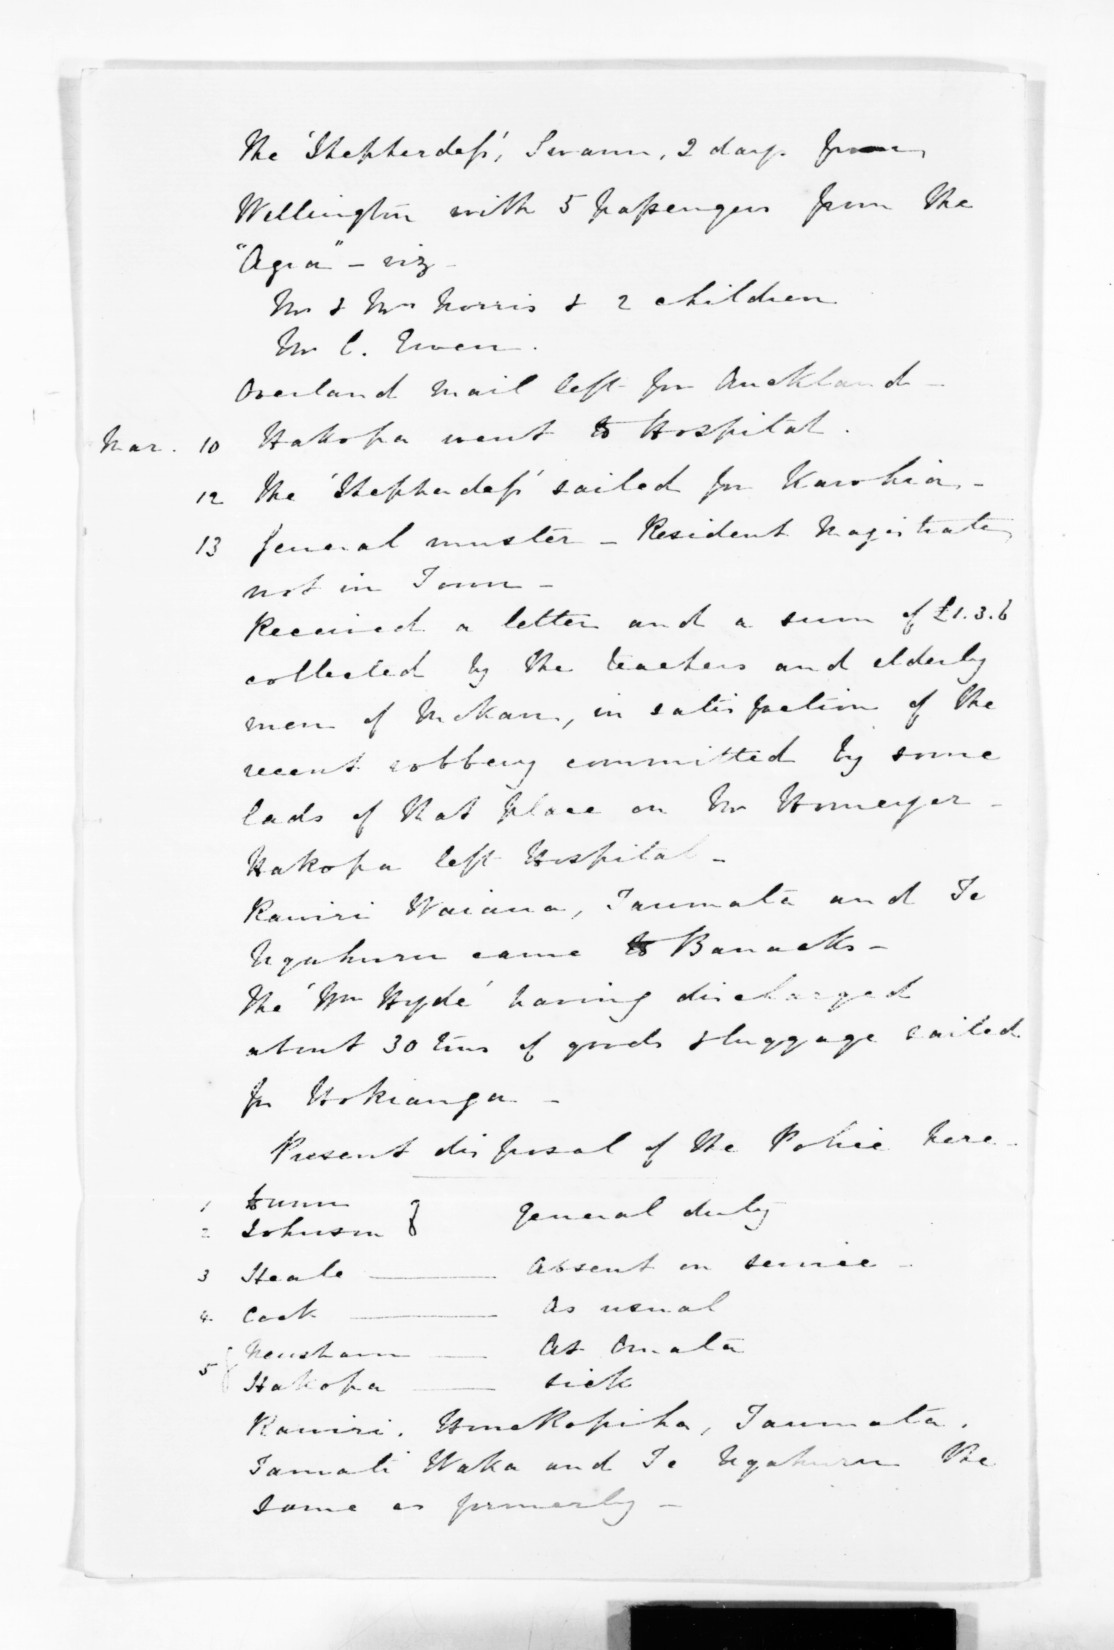 The 'Shepherdess', Swann, 2 days from
Wellington with 5 passengers from the
"Agra" - viz -
Mr & Mrs Norris & 2 children
Mr C. Ewen.
Overland mail left for Auckland -
Mar. 10 Hakopa went to Hospital.
12 The 'Shepherdess' sailed for Kawhia -
13 General muster - Resident Magistrate
not in Town -
Received a letter and a sum of £1.3.6
collected by the teachers and elderly
men of Mokau, in satisfaction of the
recent robbery committed by some
lads of that place on Mr Homeyer -
Hakopa left Hospital -
Rawiri Waiaua, Taumata and Te
Ngahuru came to Barracks -
The 'Wm Hyde' having discharged
about 30 tons of goods & luggage sailed
for Hokianga -
Present disposal of the Police here -
1 Dunn
2 Johnson } general duty
3 Heale — Absent on service -
4 Cock — As usual
5 { Newsham — At Omata
Hakopa — sick
Rawiri, Honekopiha, Taumata,
Tamati Waka and Te Ngahuru the
same as formerly -